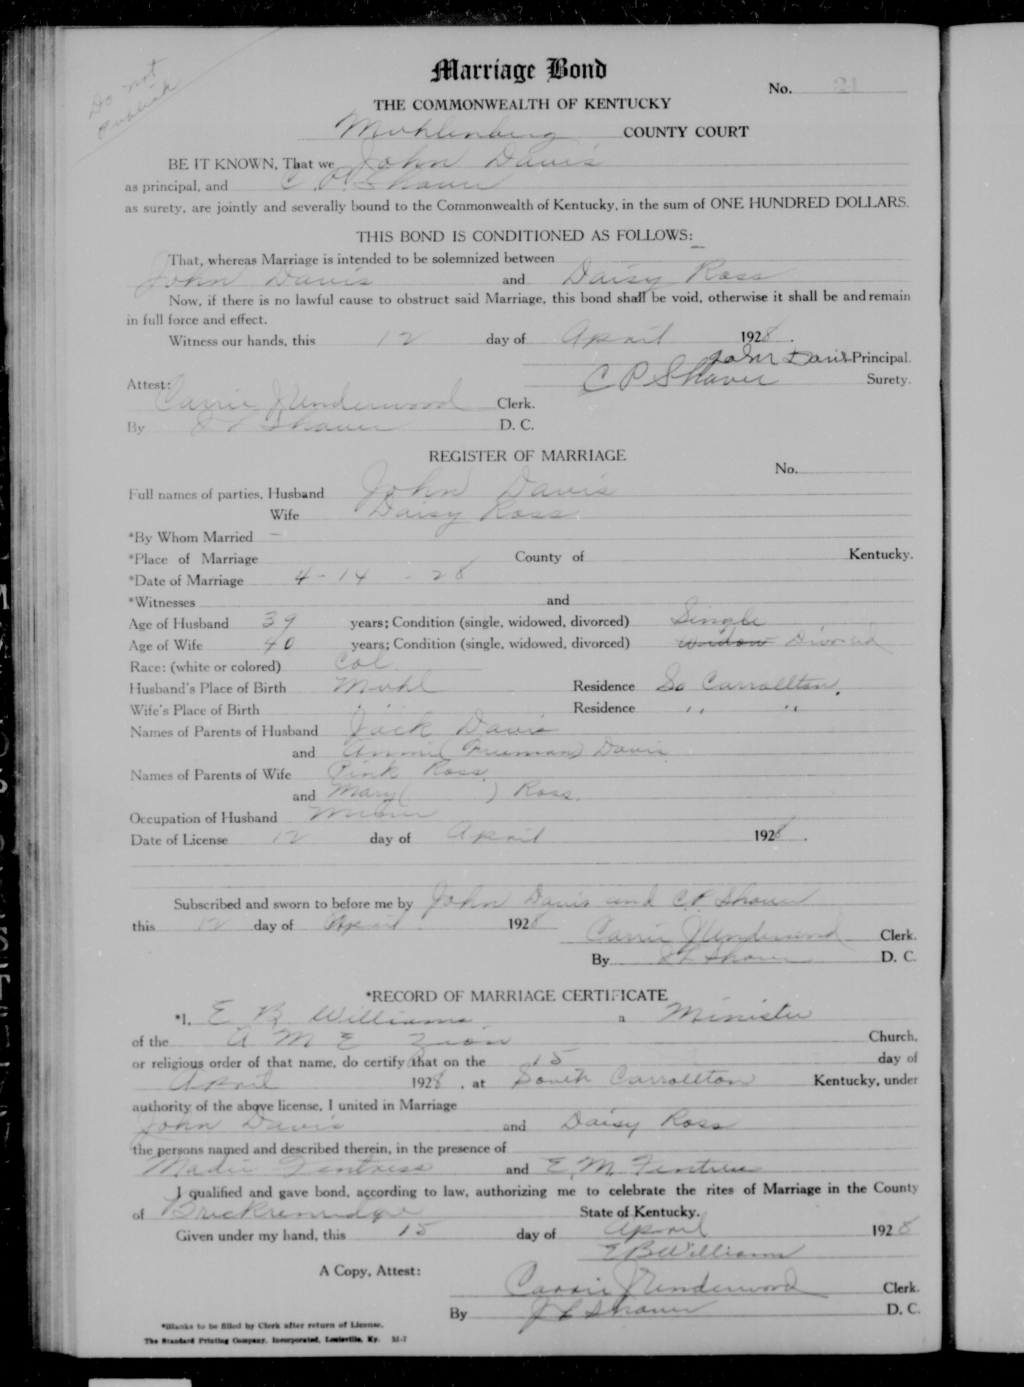 Do not
Publish
Marriage Bond
No. 21
THE COMMONWEALTH OF KENTUCKY
Muhlenberg COUNTY COURT
BE IT KNOWN, That we John Davis
as principal, and C. P. Shaver
as surety, are jointly and severally bound to the Commonwealth of Kentucky, in the sum of ONE HUNDRED DOLLARS.
THIS BOND IS CONDITIONED AS FOLLOWS:
That, whereas Marriage is intended to be solemnized between
John Davis and Daisy Ross
Now, if there is no lawful cause to obstruct said Marriage, this bond shall be void, otherwise it shall be and remain
in full force and effect.
Witness our hands, this 12 day of April 1928.
John Davis Principal.
C P Shaver Surety.
Attest:
Carrie J Underwood Clerk.
By J L Shaver D. C.
REGISTER OF MARRIAGE
No.
Full names of parties, Husband John Davis
Wife Daisy Ross
*By Whom Married —
*Place of Marriage County of Kentucky.
*Date of Marriage 4 - 14 - 28
*Witnesses and
Age of Husband 39 years; Condition (single, widowed, divorced) Single
Age of Wife 40 years; Condition (single, widowed, divorced) Widow Divorced
Race: (white or colored) Col
Husband's Place of Birth Muhl Residence So Carrollton.
Wife's Place of Birth " " Residence " "
Names of Parents of Husband Jack Davis
and Annie (Freeman) Davis
Names of Parents of Wife Pink Ross
and Mary ( ) Ross.
Occupation of Husband Miner
Date of License 12 day of April 1928.
Subscribed and sworn to before me by John Davis and C.P. Shaver
this 12 day of April 1928
Carrie J Underwood Clerk.
By J L Shaver D. C.
*RECORD OF MARRIAGE CERTIFICATE
*I, E B Williams, a Minister
of the A M E Zion Church,
or religious order of that name, do certify that on the 15 day of
April 1928, at South Carrollton Kentucky, under
authority of the above license, I united in Marriage
John Davis and Daisy Ross
the persons named and described therein, in the presence of
Madie Fentress and E, M, Fentress
I qualified and gave bond, according to law, authorizing me to celebrate the rites of Marriage in the County
of Breckenridge State of Kentucky.
Given under my hand, this 15 day of April 1928
E B Williams
A Copy, Attest:
Carrie J Underwood Clerk.
By J L Shaver D. C.
*Blanks to be filled by Clerk after return of License.
The Standard Printing Company, Incorporated, Louisville, Ky.